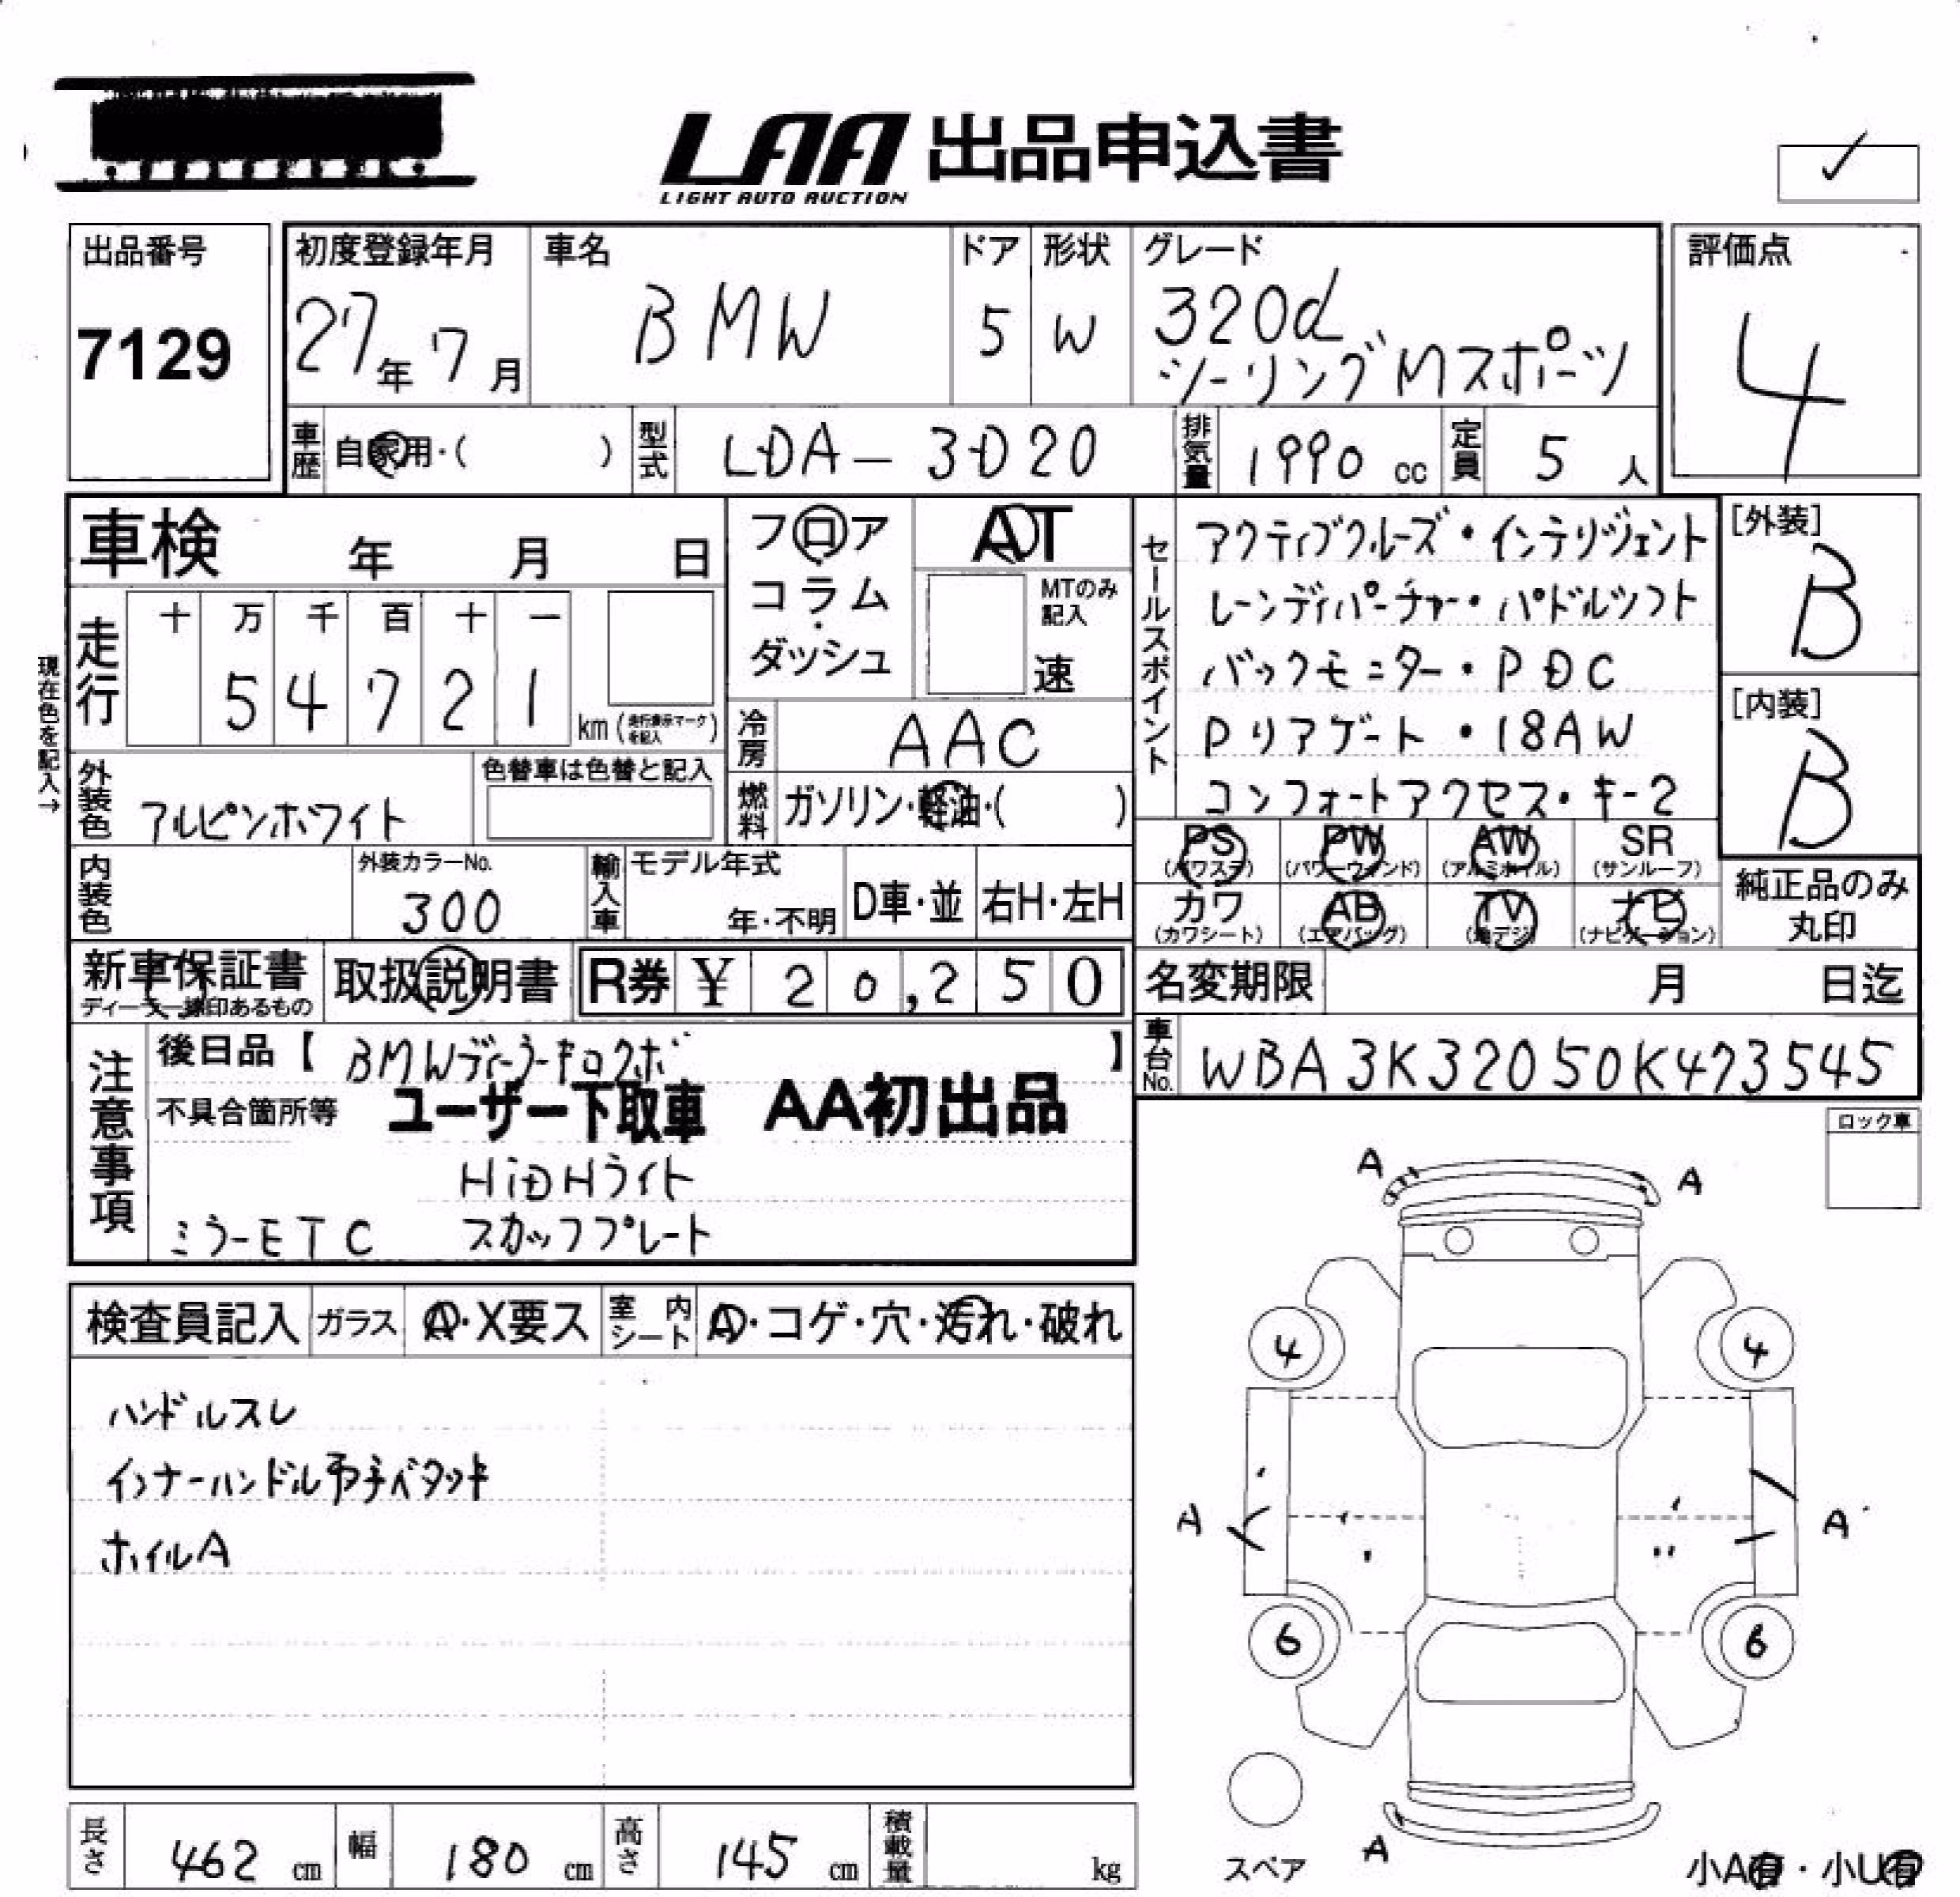 LAA 出品申込書
LIGHT AUTO AUCTION
✓
出品番号
7129
初度登録年月
27年7月
車名
BMW
ドア
5
形状
W
グレード
320d
ツーリングMスポーツ
評価点
4
車歴
自家用・( )
型式
LDA-3D20
排気量
1990 cc
定員
5 人
車検 年 月 日
走行
十 万 千 百 十 一
5 4 7 2 1
km(走行表示マークを記入)
現在色を記入→
フロア
・
コラム
・
ダッシュ
AT
MTのみ記入
速
冷房
AAC
燃料
ガソリン・軽油・( )
セールスポイント
アクティブクルーズ・インテリジェント
レーンディパーチャー・パドルシフト
バックモニター・PDC
Pリアゲート・18AW
コンフォートアクセス・キー2
[外装]
B
[内装]
B
外装色
アルピンホワイト
色替車は色替と記入
内装色
外装カラーNo.
300
輸入車
モデル年式
年・不明
D車・並
右H・左H
PS
(パワステ)
PW
(パワーウィンド)
AW
(アルミホイル)
SR
(サンルーフ)
カワ
(カワシート)
AB
(エアバッグ)
TV
(地デジ)
ナビ
(ナビゲーション)
純正品のみ
丸印
新車保証書
ディーラー線印あるもの
取扱説明書
R券 ¥ 20,250
名変期限 月 日迄
車台No.
WBA3K32050K473545
注意事項
後日品【 BMWディーラーキロクボ 】
不具合箇所等
ユーザー下取車 AA初出品
HiDHライト
ミラーETC スカッフプレート
ロック車
検査員記入
ガラス
A・X要ス
室内シート
A・コゲ・穴・汚れ・破れ
ハンドルスレ
インナーハンドル廻りベタツキ
ホイルA
A
A
4
4
A
A
6
6
A
スペア
小A有・小U有
長さ
462 cm
幅
180 cm
高さ
145 cm
積載量
kg